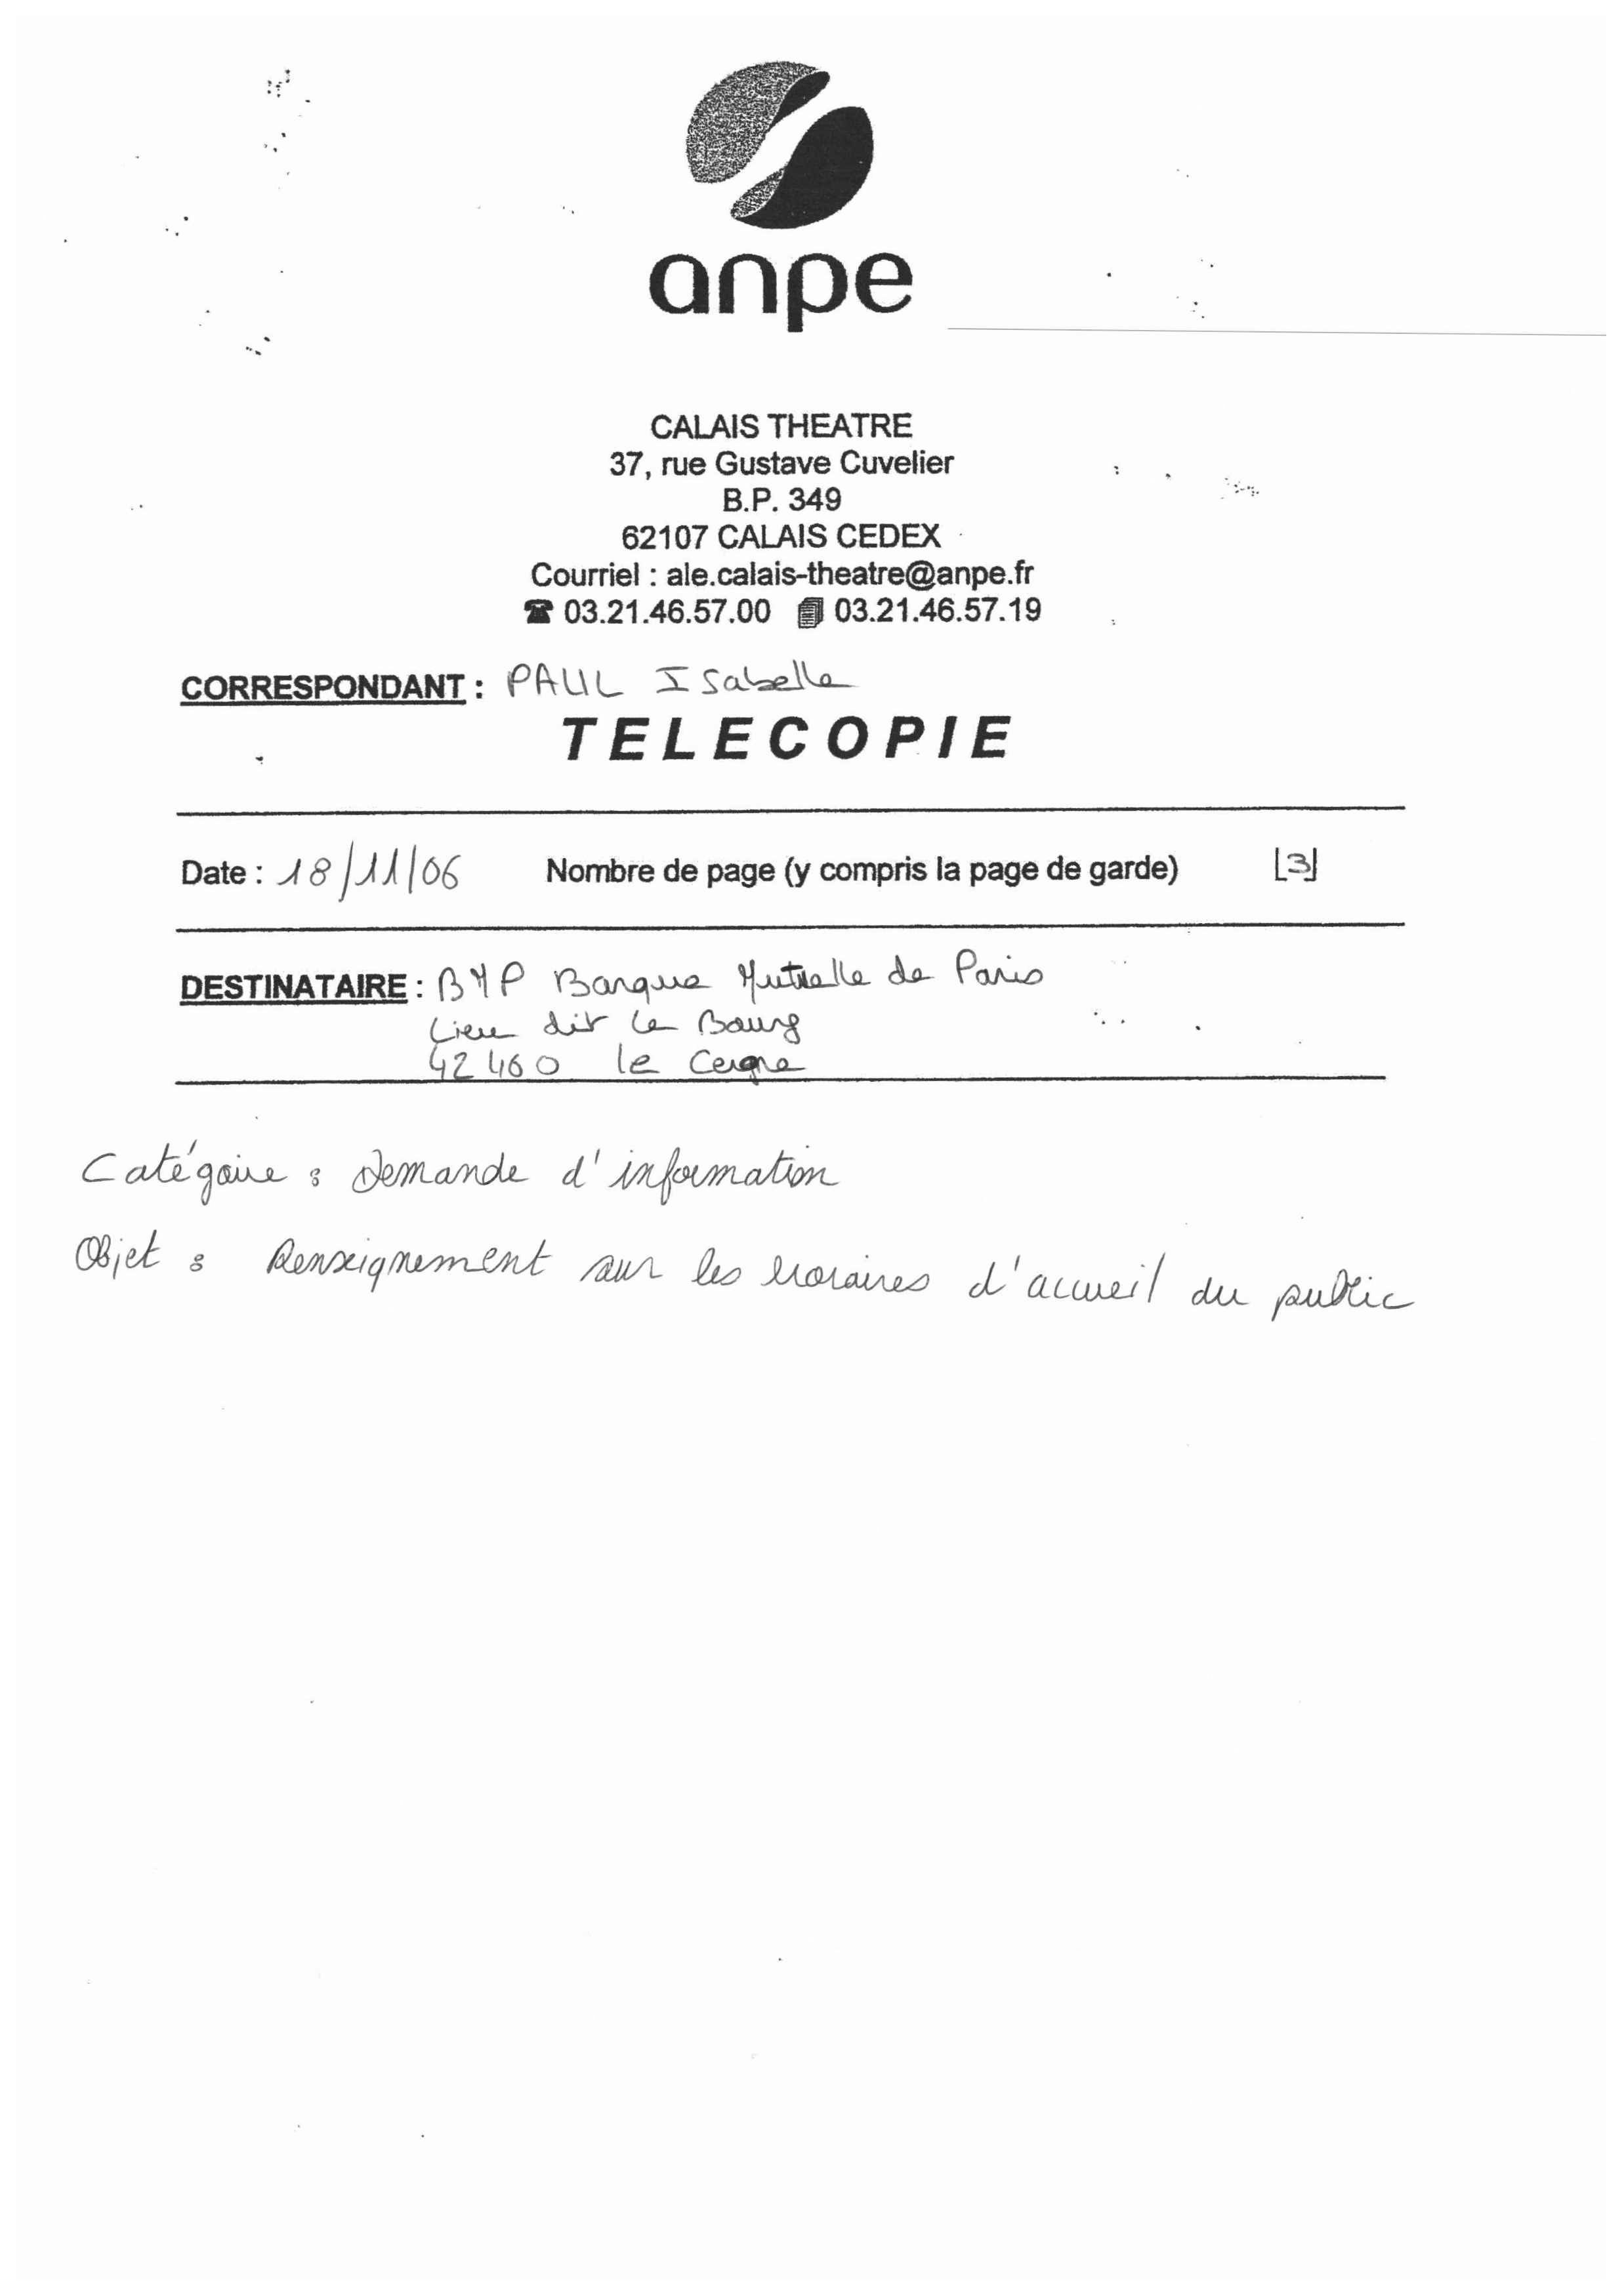 anpe
CALAIS THEATRE
37, rue Gustave Cuvelier
B.P. 349
62107 CALAIS CEDEX
Courriel : ale.calais-theatre@anpe.fr
☎ 03.21.46.57.00 03.21.46.57.19
CORRESPONDANT : PAUL Isabelle
TELECOPIE
Date : 18/11/06 Nombre de page (y compris la page de garde) [3]
DESTINATAIRE : BMP Banque Mutuelle de Paris
Lieu dit Le Bourg
42460 le Cergne
Catégorie : Demande d'information
Objet : Renseignement sur les horaires d'accueil du public